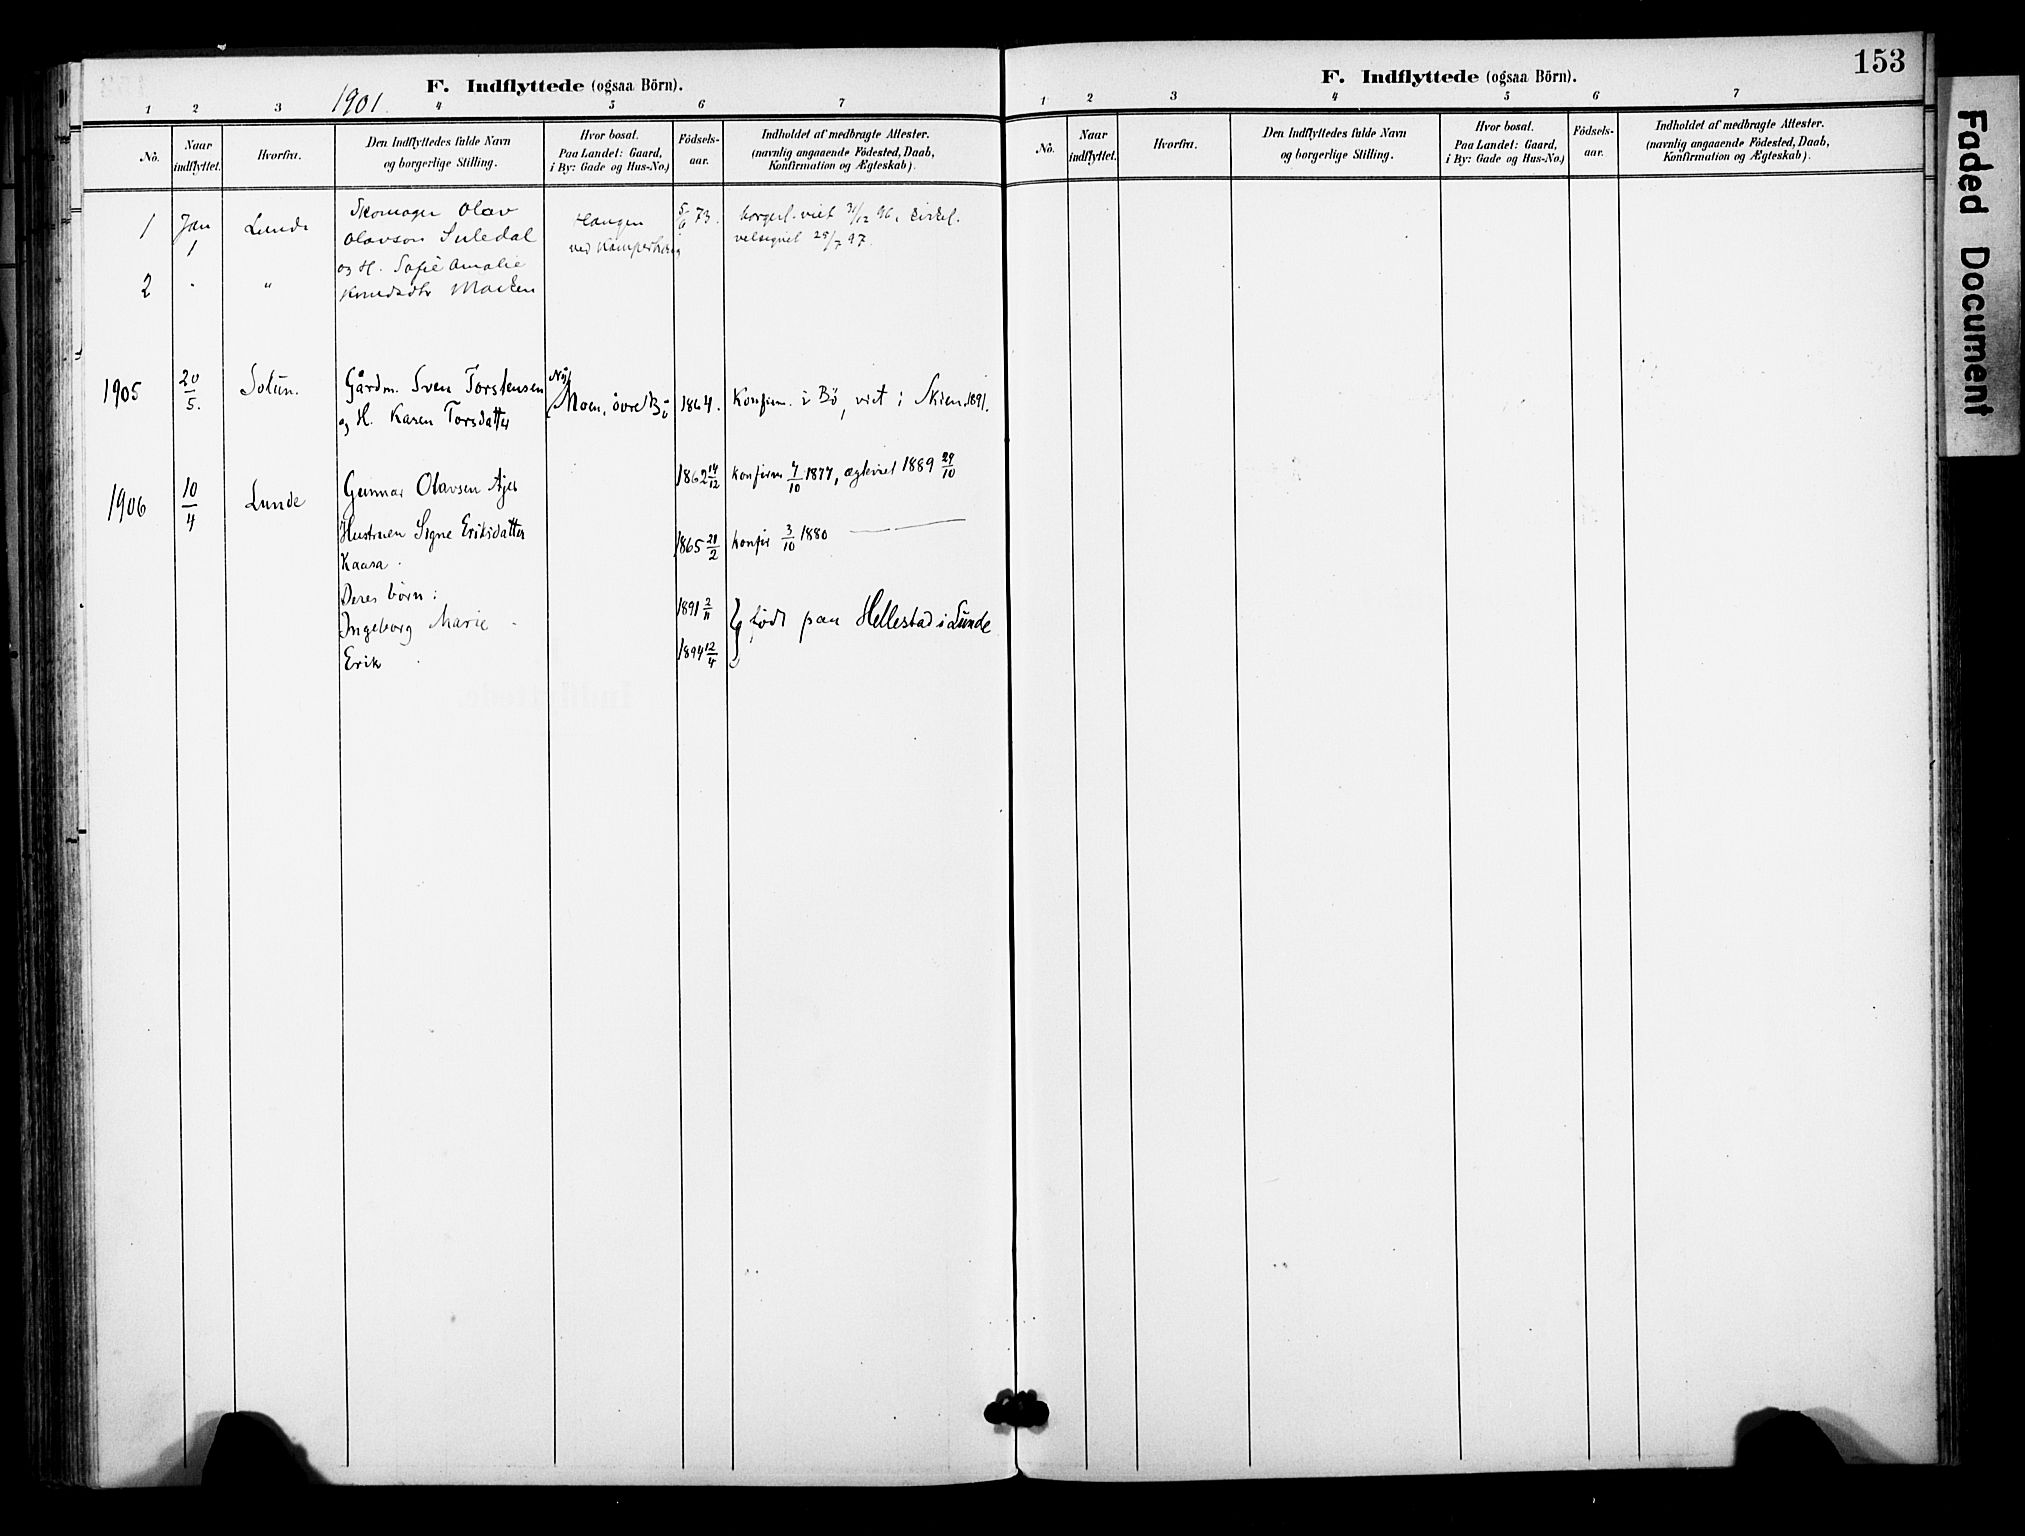 F. Indflyttede (ogsaa Börn).
1901.
1 2 3 4 5 6 7
No.
Naar indflyttet.
Hvorfra.
Den Indflyttedes fulde Navn
og borgerlige Stilling.
Hvor bosat.
Paa Landet: Gaard,
i By: Gade og Hus-No.)
Födsels-
aar.
Indholdet af medbragte Attester.
(navnlig angaaende Födested, Daab,
Konfirmation og Ægteskab).
1 Jan 1 Lunde Skomager Olav Haugen 5/6 73. borgerl. viet 31/12 96, kirkel.
Olavson Suledal ved velsignet 29/7 97.
og H. Sofie Amalie
2 " Knudsdtr
1905 20/5. Solum. Gårdm. Sven Torstensen Moen, övre Bö 1864. Konfirm. i Bö, viet i Skien 1891.
og H. Karen Torsdatter
1906 10/4 Lunde Gunnar Olavsen 1862 14/12 konfirm 7/10 1877, ægteviet 1889 29/10
Hustruen Signe Eriksdatter 1865 21/2 konfir 3/10 1880
Kaasa.
Deres börn:
Ingeborg Marie 1891 2/11 födt paa Hellestad i Lunde
Erik 1894 12/4
153
F. Indflyttede (ogsaa Börn).
1 2 3 4 5 6 7
No.
Naar
indflyttet.
Hvorfra.
Den Indflyttedes fulde Navn
og borgerlige Stilling.
Hvor bosat.
Paa Landet: Gaard,
i By: Gade og Hus-No.)
Födsels-
aar.
Indholdet af medbragte Attester.
(navnlig angaaende Födested, Daab,
Konfirmation og Ægteskab).
Faded Document